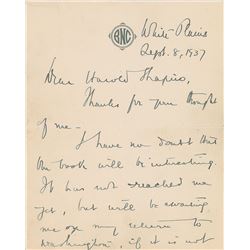 BNC
White Plains
Sept. 8, 1937
Dear Harold Shapiro,
Thanks for your thought
of me —
I have no doubt that
your book will be interesting.
It has not reached me
yet, but will be awaiting
me on my return to
Washington, if it is not